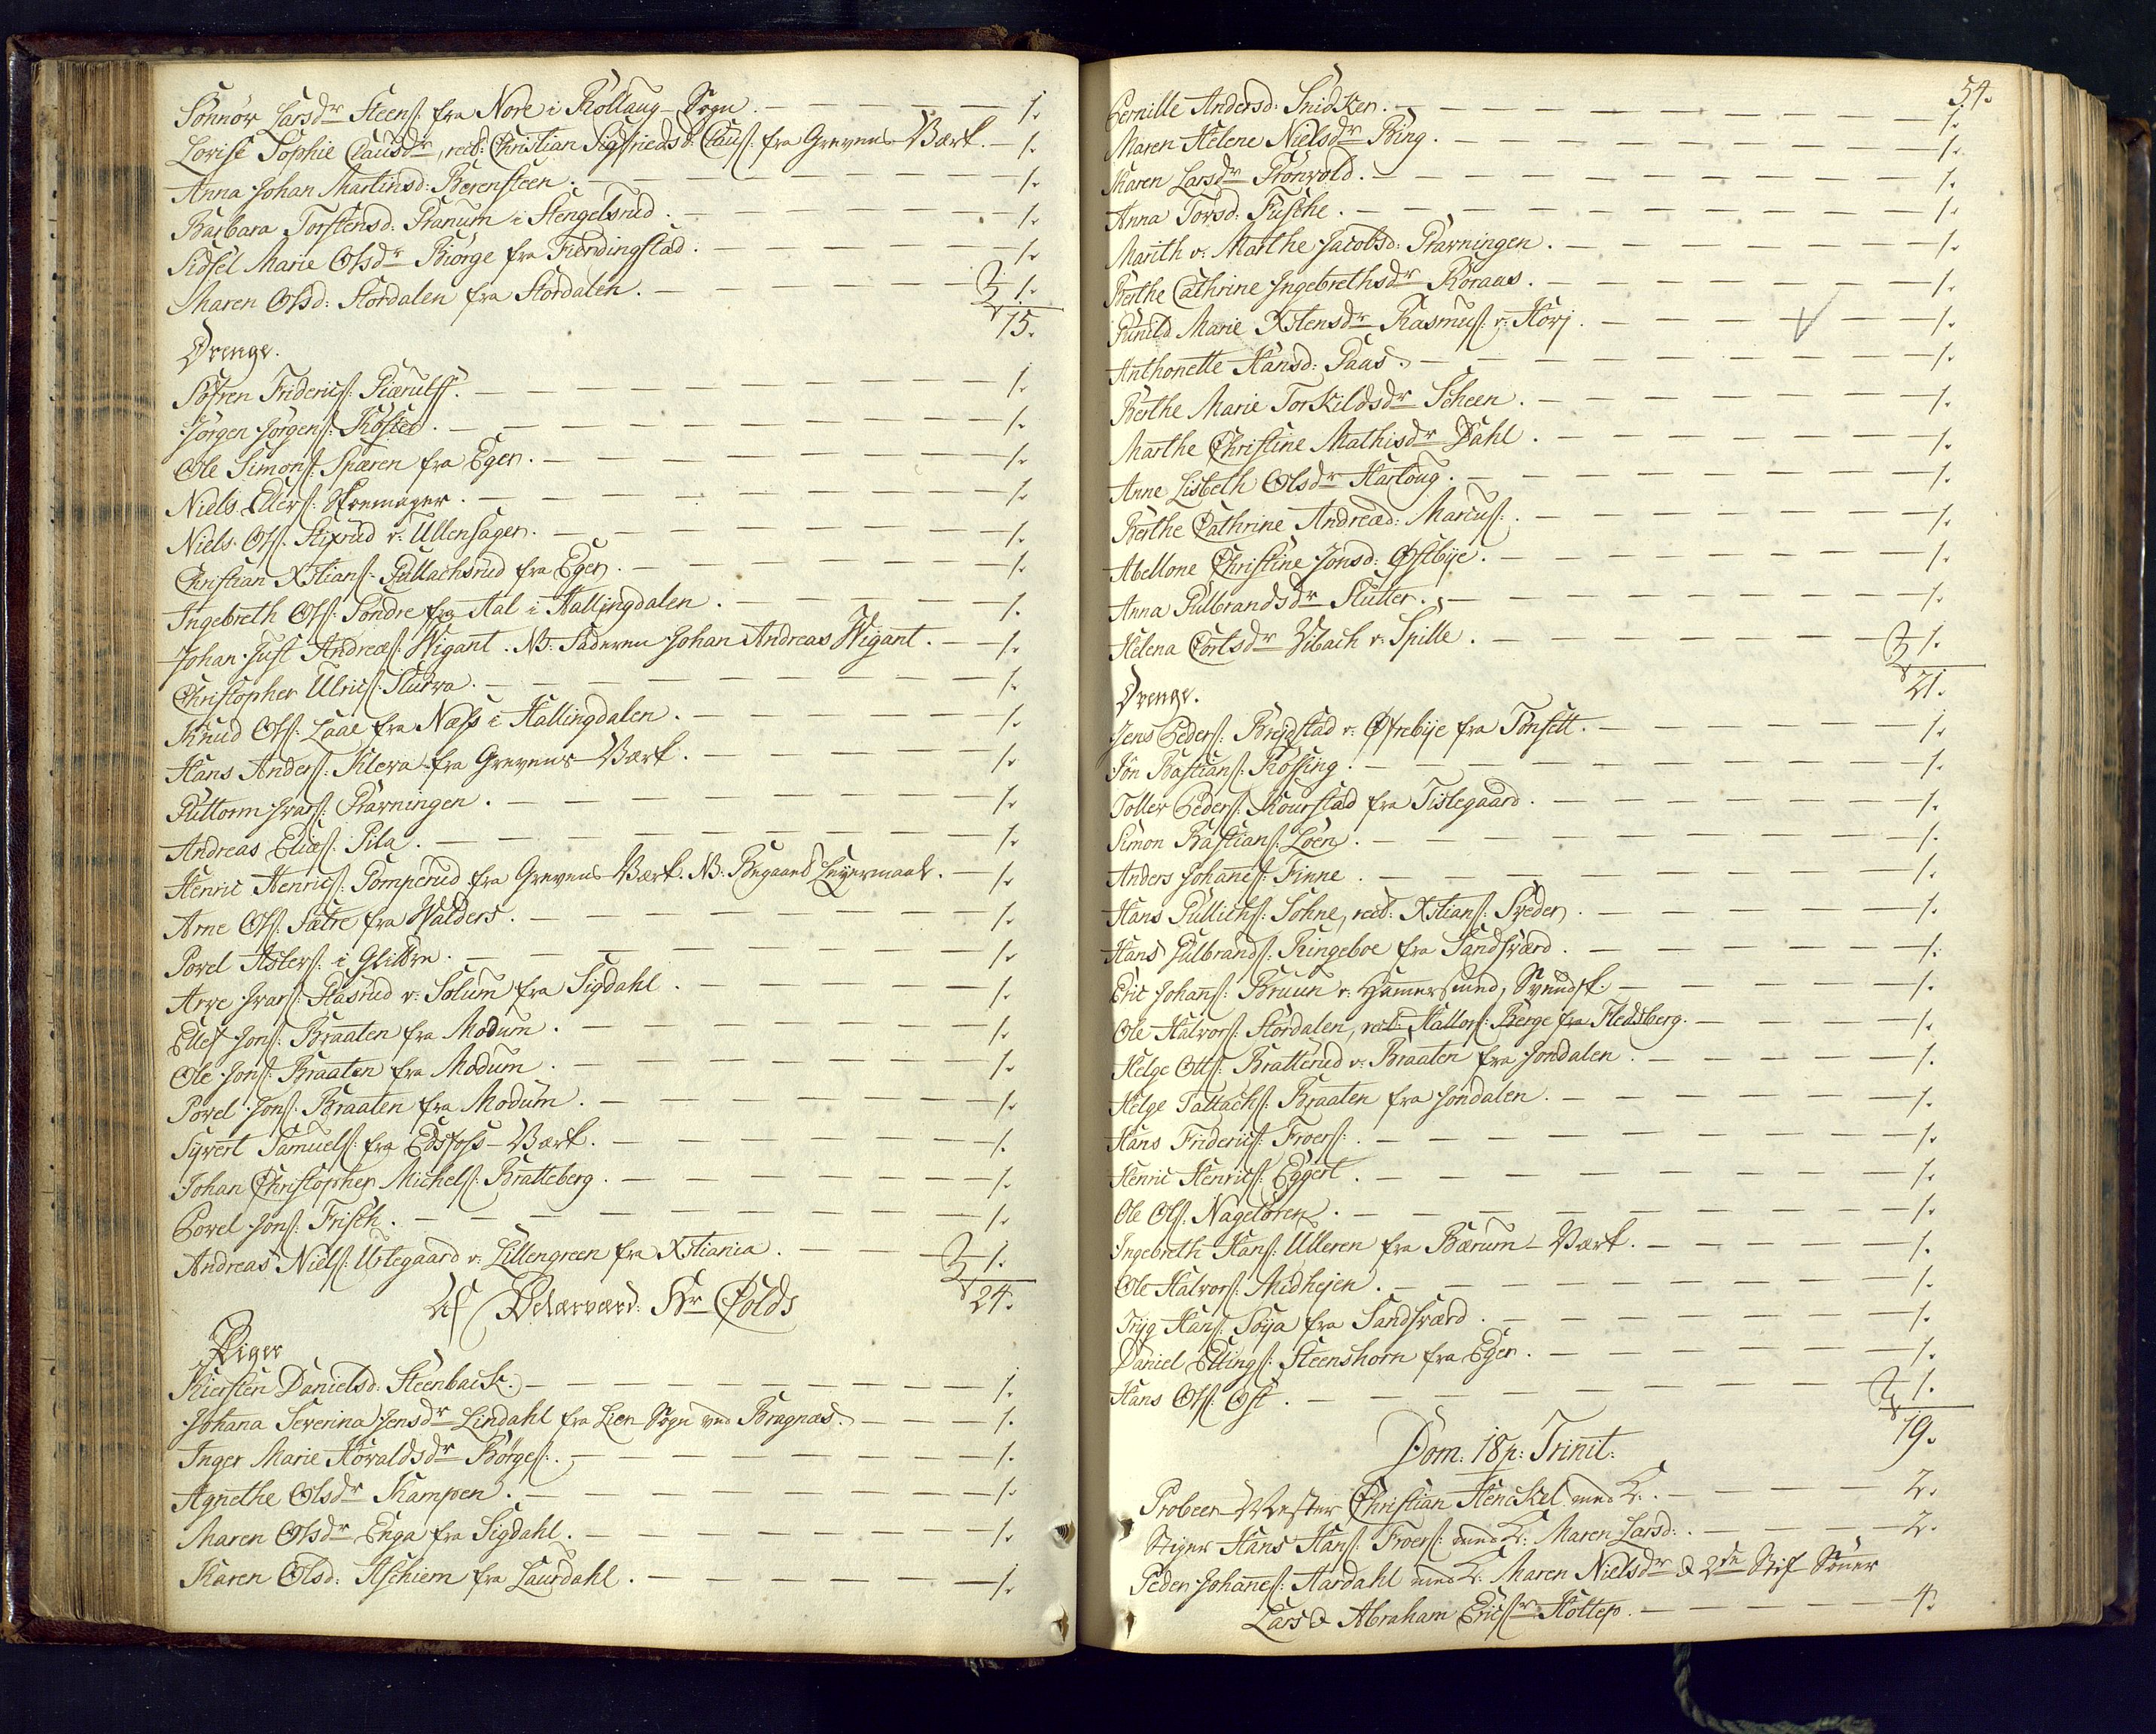 Sønnøv Larsdr Steens: fra Nore i Rollaug-Sogn. 1.
Lovise Sophie Clausdr, rect: Christian Sigfriedsd: Claus: fra Grevens-Værk. 1.
Anna Johan Martinsd: Berensteen. 1.
Barbara Torstensd: Granum i Stengelsrud. 1.
Sidsel Marie Olsdr Biørge fra Fierdingstad. 1.
Maren Olsd: Stordalen fra Stordalen. 1.
15.
Drenge.
Søfren Frideric: Giærulff. 1.
Jørgen Jørgens: Røsted. 1.
Ole Simons: Spæren fra Eger. 1.
Niels Ellers: Skoemager. 1.
Niels Ols: Stixrud v: Ullensager. 1.
Christian Xstians: Gullachsrud fra Eger. 1.
Ingebreth Ols: Søndre fra Aal i Hallingdalen. 1.
Johan Just Andreæs: Wigant. NB: Faderen Johan Andreas Wigant. 1.
Christopher Ulrics: Slurva. 1.
Knud Ols: Laae fra Næss i Hallingdalen. 1.
Hans Anders: Kleva fra Grevens-Værk. 1.
Guttorm Ivars: Gravningen. 1.
Andreas Eliæs: Pila. 1.
Henric Henrics: Pomperud fra Grevens-Værk. NB: Begaaed Leyermaal. 1.
Arne Ols: Sætre fra Walders. 1.
Povel Aslers: i Glittre. 1.
Arve Ivars: Aasrud v: Solum fra Sigdahl. 1.
Ellef Jons: Braaten fra Modum. 1.
Ole Jons: Braaten fra Modum. 1.
Povel Jons: Braaten fra Modum. 1.
Syvert Samuels: fra Edsfoss-Værk. 1.
Johan Christopher Michels: Bratteberg. 1.
Povel Jons: Frisch. 1.
Andreas Niels: Urtegaard v: Lillengreen fra Xstiania. 1.
24.
Af Velærværd: Hr Colds
Piger
Kiersten Danielsd: Steenback. 1.
Johana Severina Jensdr Lindahl fra Lier Sogn ved Bragnæs. 1.
Inger Marie Hovaldsdr Børges: 1.
Agnethe Olsdr Kampen. 1.
Maren Olsdr Enga fra Sigdahl. 1.
Karen Olsd: Aschiem fra Laurdahl. 1.
54.
Pernille Andersd: Snidker. 1.
Maren Helene Nielsdr Bing. 1.
Karen Larsdr Grønvold. 1.
Anna Torsd: Fusche. 1.
Marith v: Marthe Jacobsd: Gravningen. 1.
Berthe Cathrine Ingebrethsdr Roraas. 1.
Gunild Marie Xstensdr Rasmus: v: Korj. 1.
Anthonette Hansd: Paas. 1.
Berthe Marie Torkildsdr Scheen. 1.
Marthe Christine Mathisdr Dahl. 1.
Anne Lisbeth Olsdr Hartoug. 1.
Berthe Cathrine Andreæd: Marcus: 1.
Abellone Christine Jonsd: Østbye. 1.
Anna Gulbrandsdr Slutter. 1.
Helena Cortsdr Vibach v: Spille. 1.
21.
Drenge.
Jens Peders: Breistad v: Øfrebye fra Tønsett. 1.
Jon Bastians: Røssing. 1.
Toller Peders: Kourstad fra Tislegaard. 1.
Simon Bastians: Løen. 1.
Anders Johanes: Finne. 1.
Hans Gullichs: Sohne, rect: Xstians: Sveder. 1.
Hans Gulbrands: Ringeboe fra Sandsværd. 1.
Eric Johans: Bruun v: Hammersmed, Svendsk. 1.
Ole Halvors: Stordalen, rect: Hallors: Berge fra Fledsberg. 1.
Helge Olls: Bratterud v: Braaten fra Jondalen. 1.
Helge Tallachs: Braaten fra Jondalen. 1.
Hans Friderics: Froers: 1.
Henric Henrics: Eggert. 1.
Ole Ols: Nageløren. 1.
Ingebreth Hans: Ulleren fra Bærum-Værk. 1.
Ole Halvors: Midhejen. 1.
Tryg Hans: Soya fra Sandsværd. 1.
Daniel Ellings: Steenshorn fra Eger. 1.
Hans Ols: Ost. 1.
19.
Dom: 18 p: Trinit:
Probeer-Mester Christian Henckel med K. 2.
Stiger Hans Hans: Froers: med K: Maren Larsd: 2.
Peder Johannes: Aardahl med K: Maren Nielsdr & 2de Stif-Sønner
Lars & Abraham Ericsr Holtep. 4.